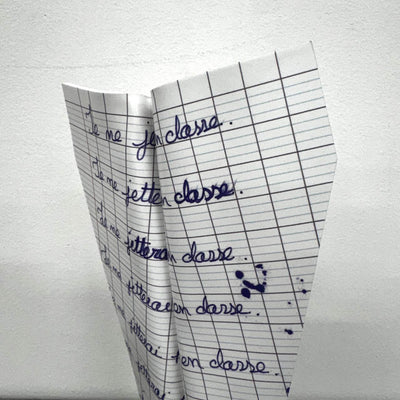 Je ne j en classe.
Je ne jette en classe.
Je ne jettera en classe.
Je ne jetterai en classe.
Je ne jetterai en classe.